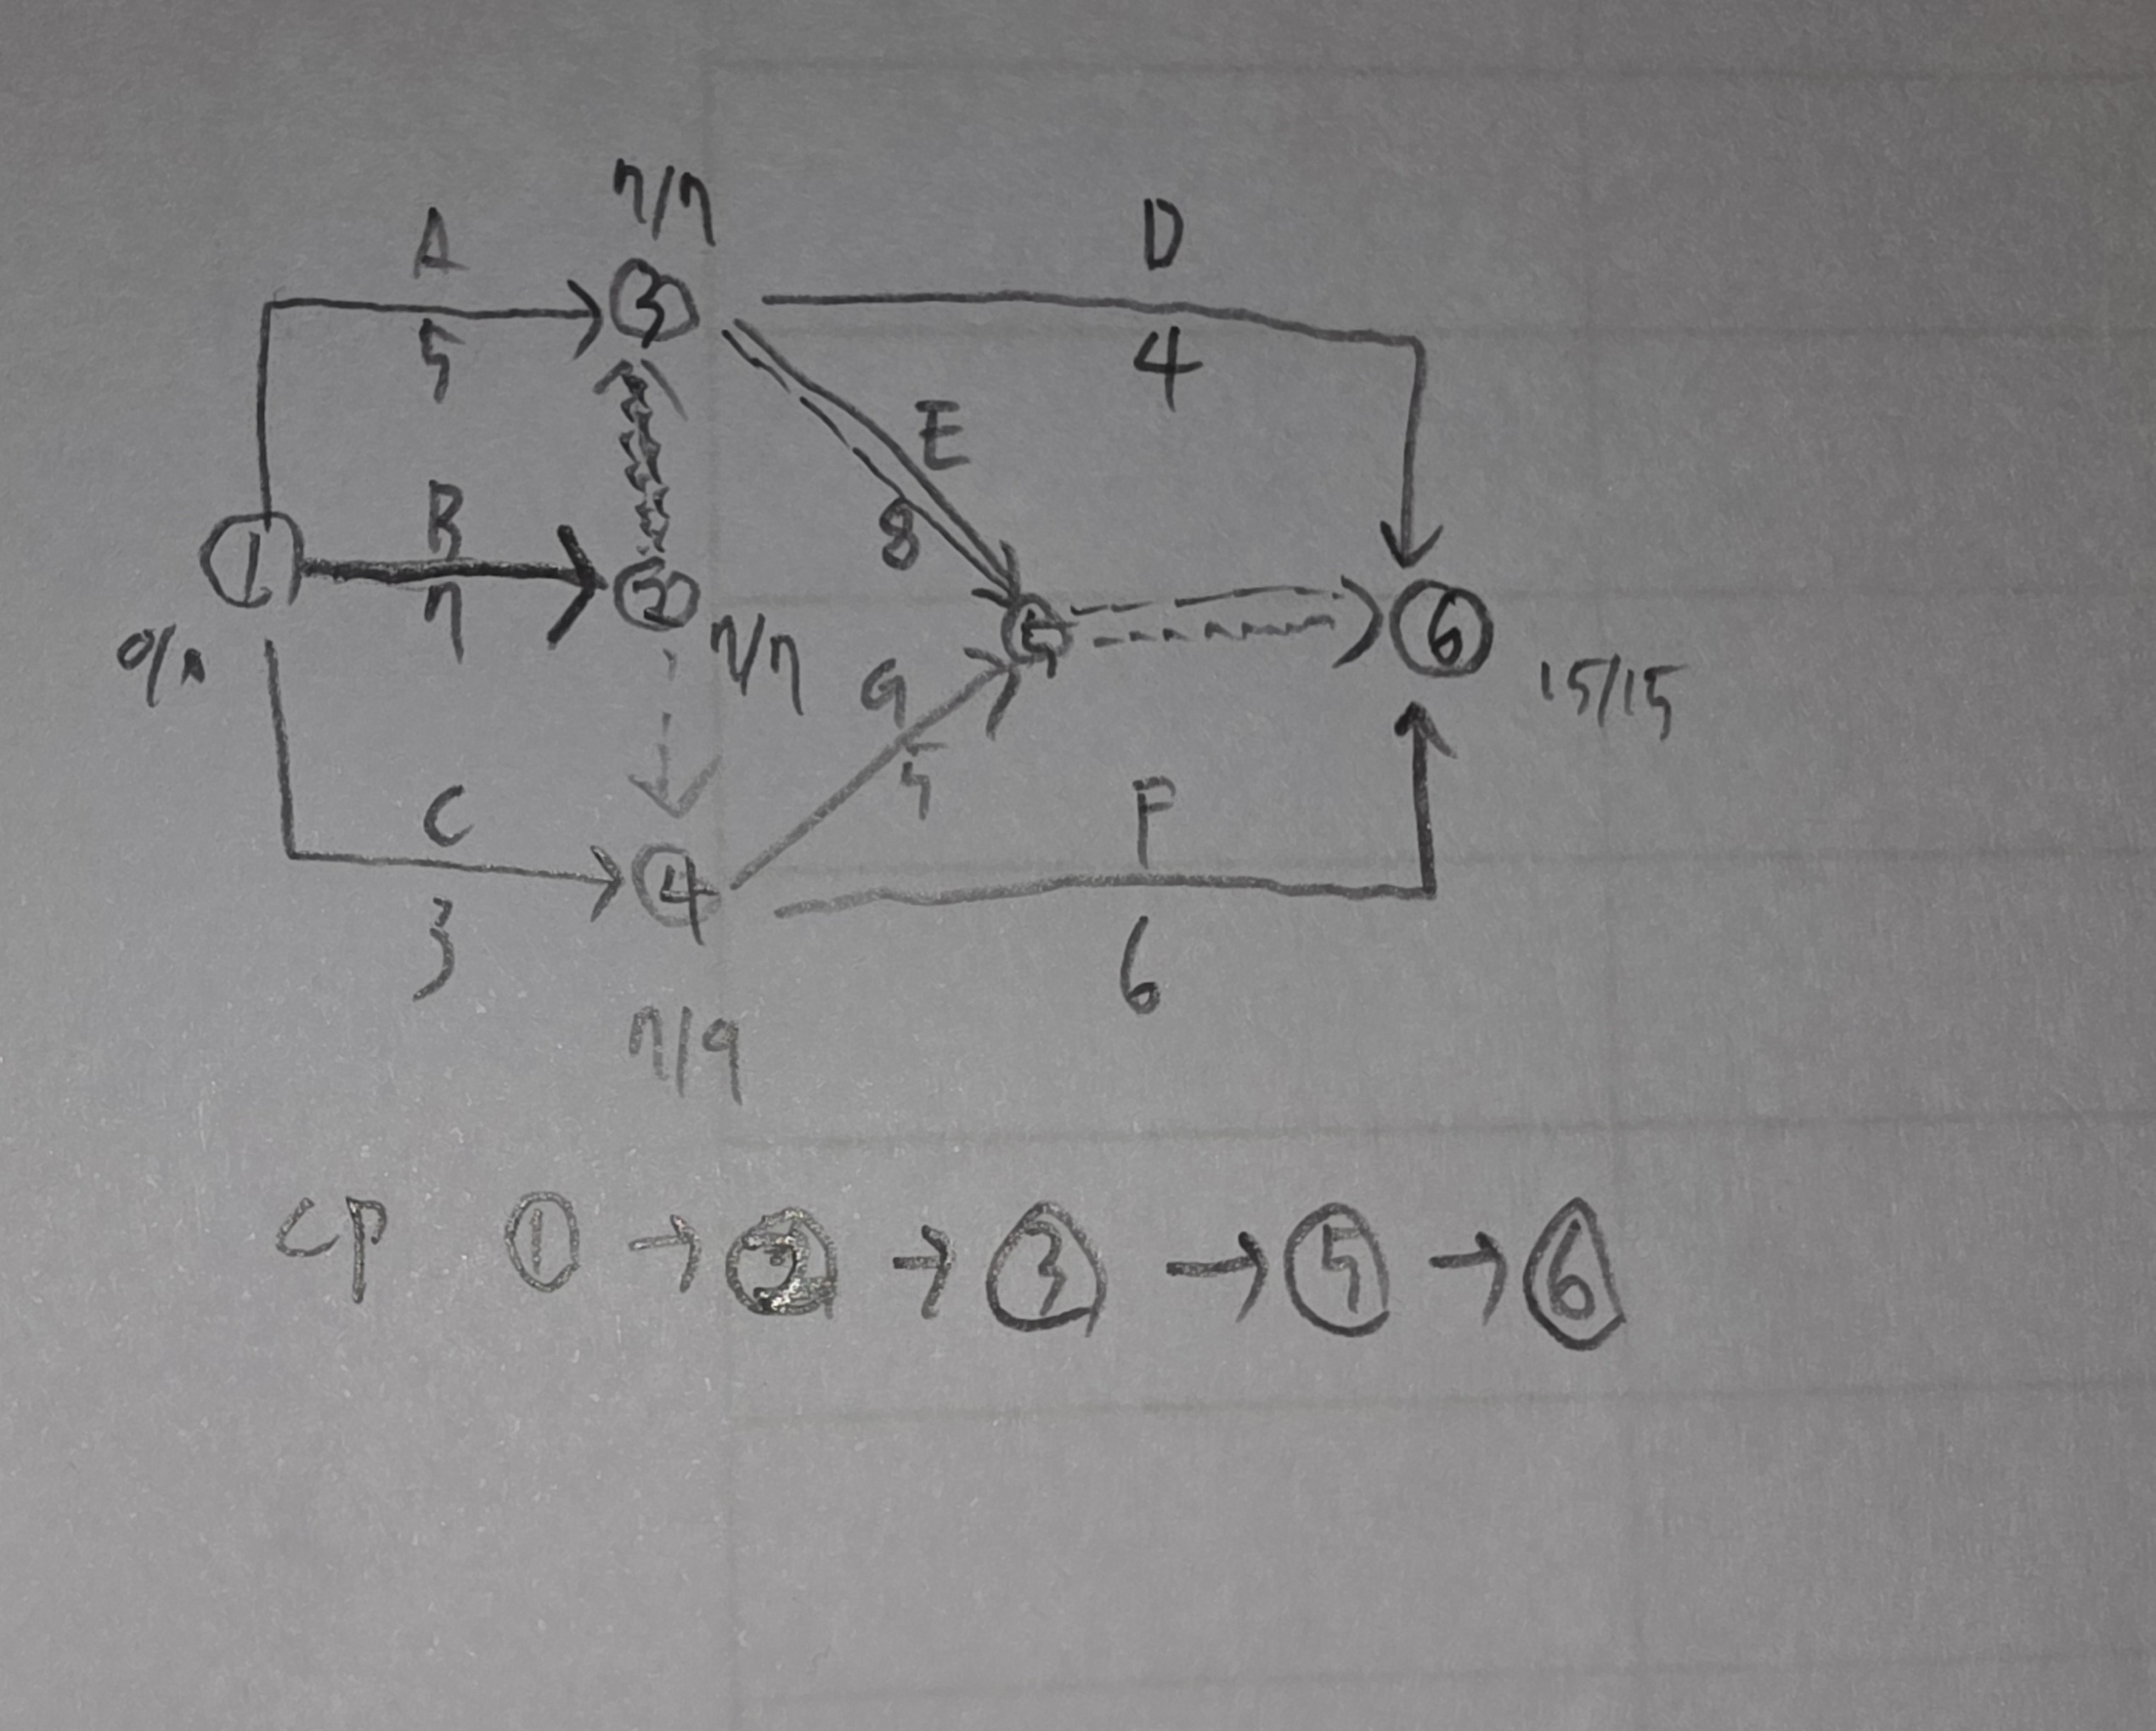 7/7
A
D
③
5
4
E
B
8
①
②
⑤
⑥
7
0/0
7/7
G
15/15
5
C
F
④
3
6
7/9
CP ① → ② → ③ → ⑤ → ⑥